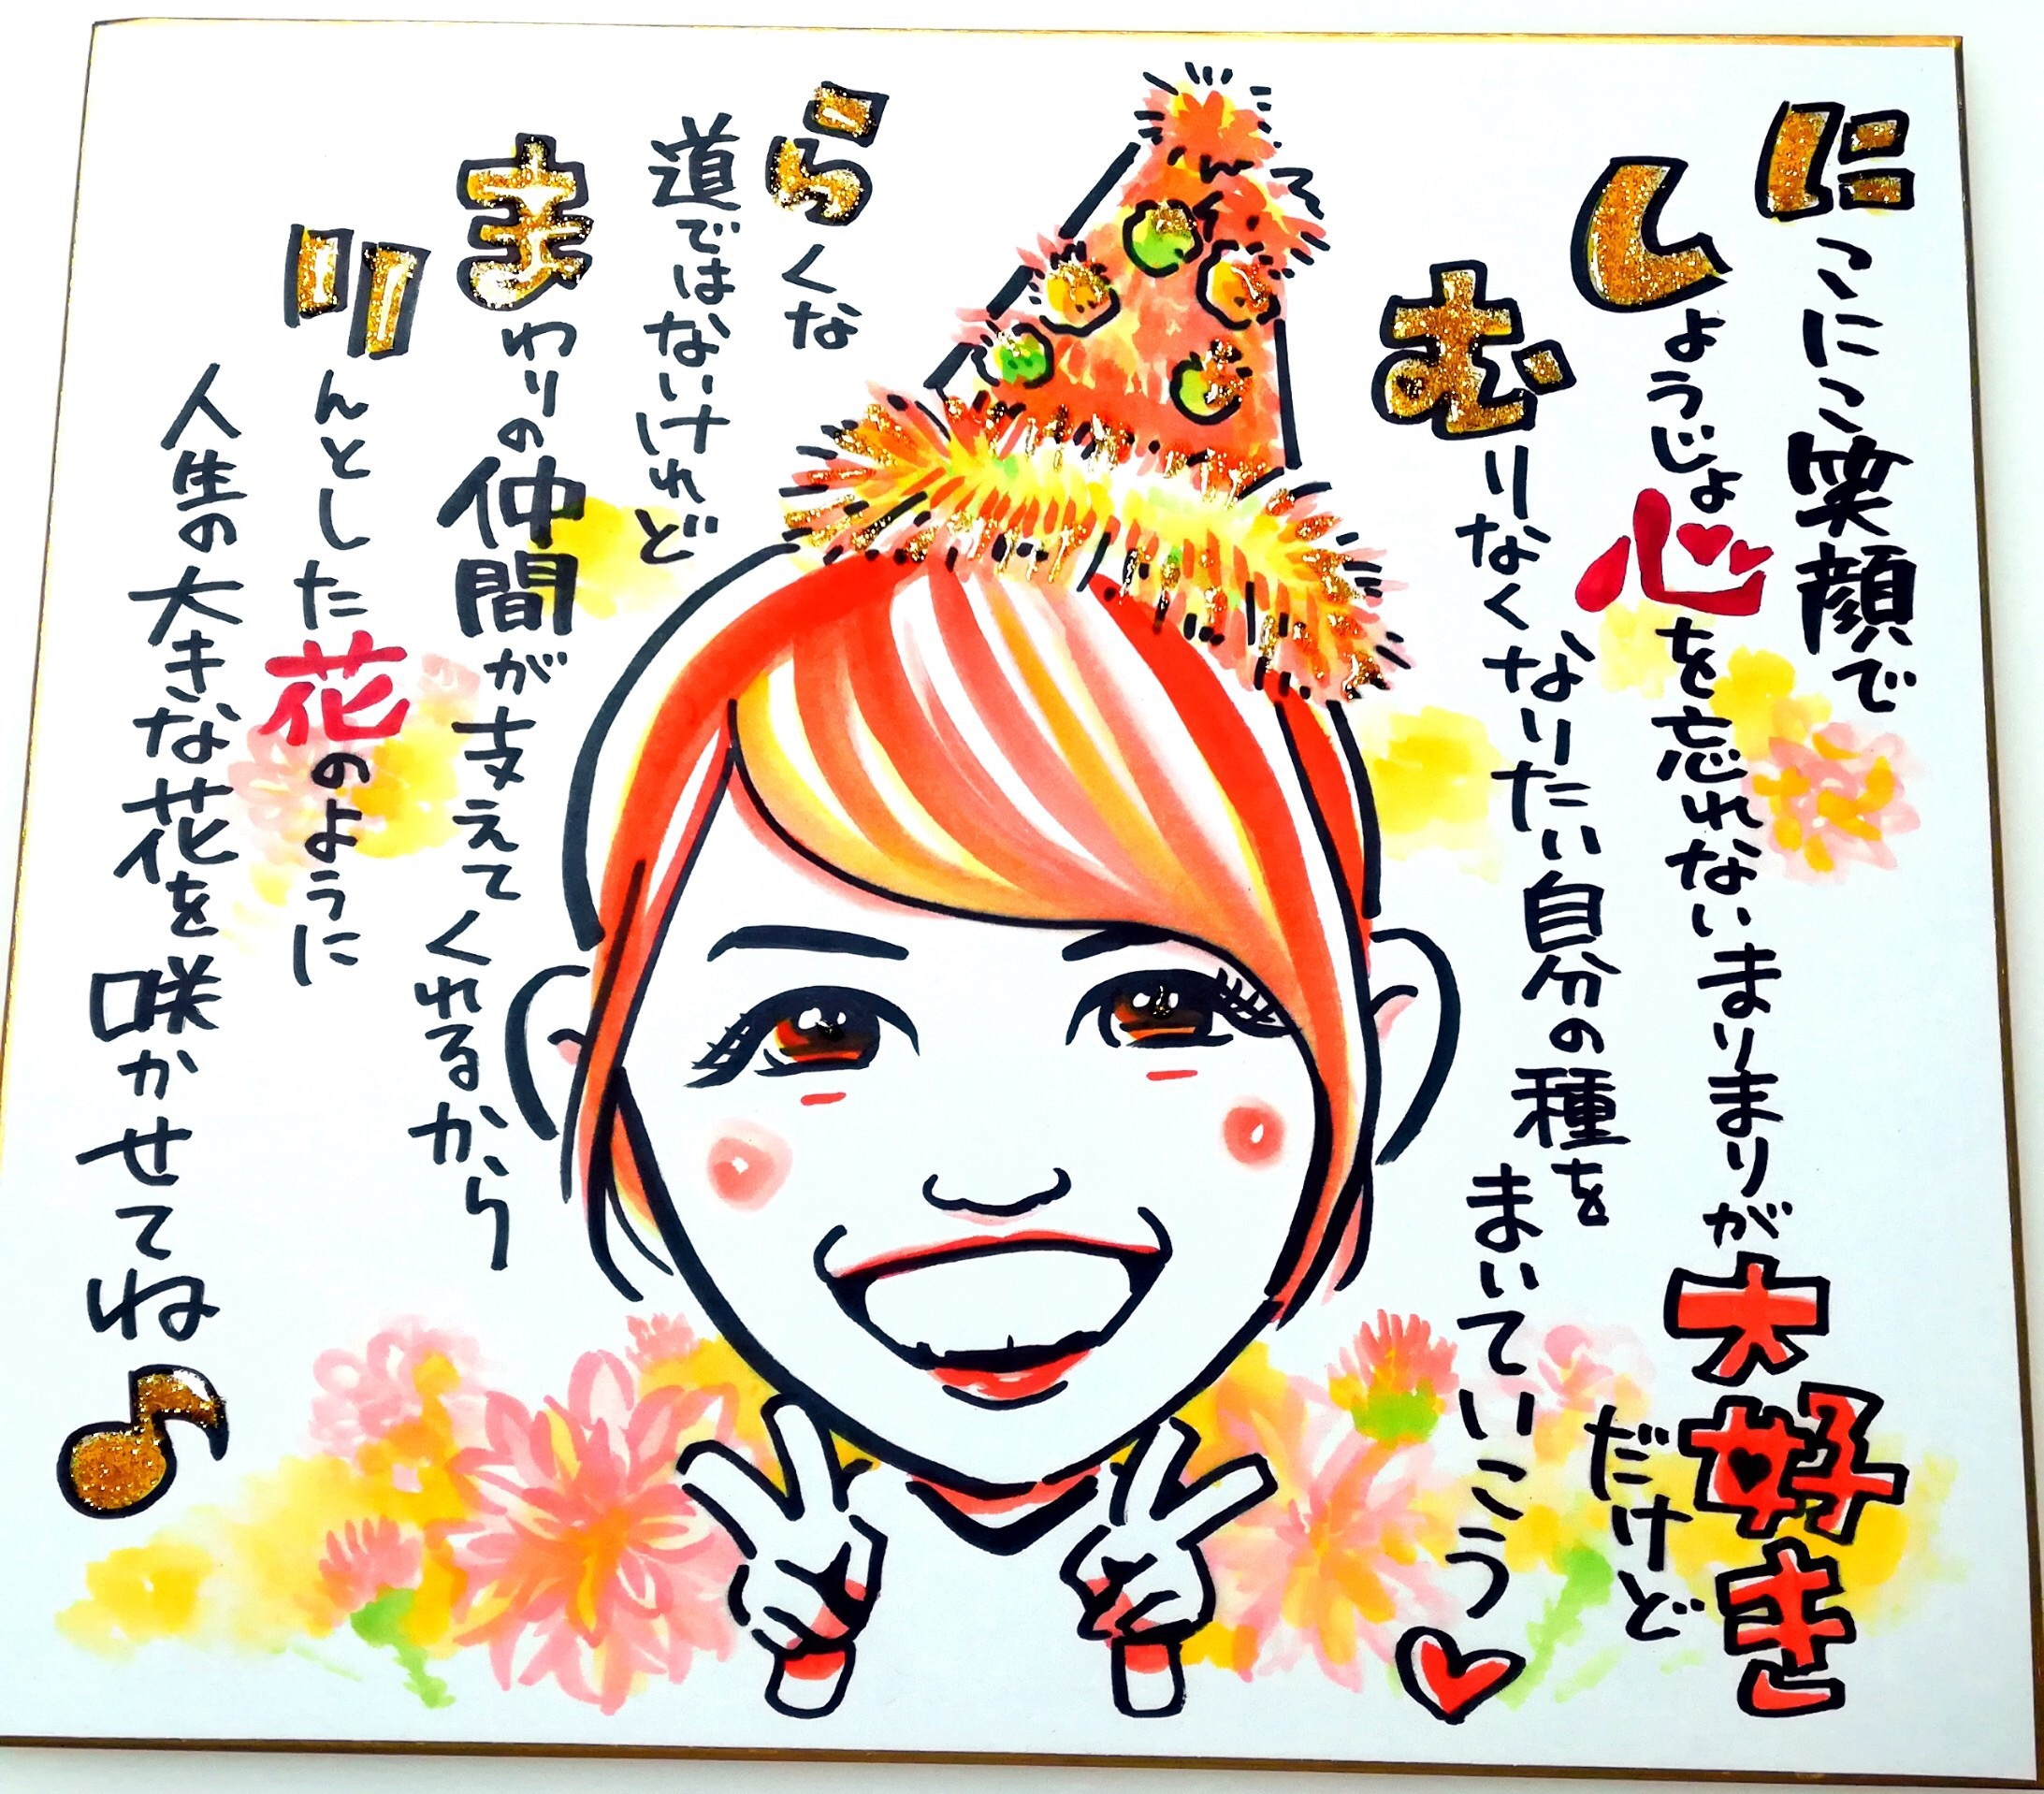 にこにこ笑顔で
しょうじょ心を忘れないまりまりが大好き
だけど
むりなくなりたい自分の種を
まいていこう
らくな
道ではないけれど
まわりの仲間が支えてくれるから
りんとした花のように
人生の大きな花を咲かせてね